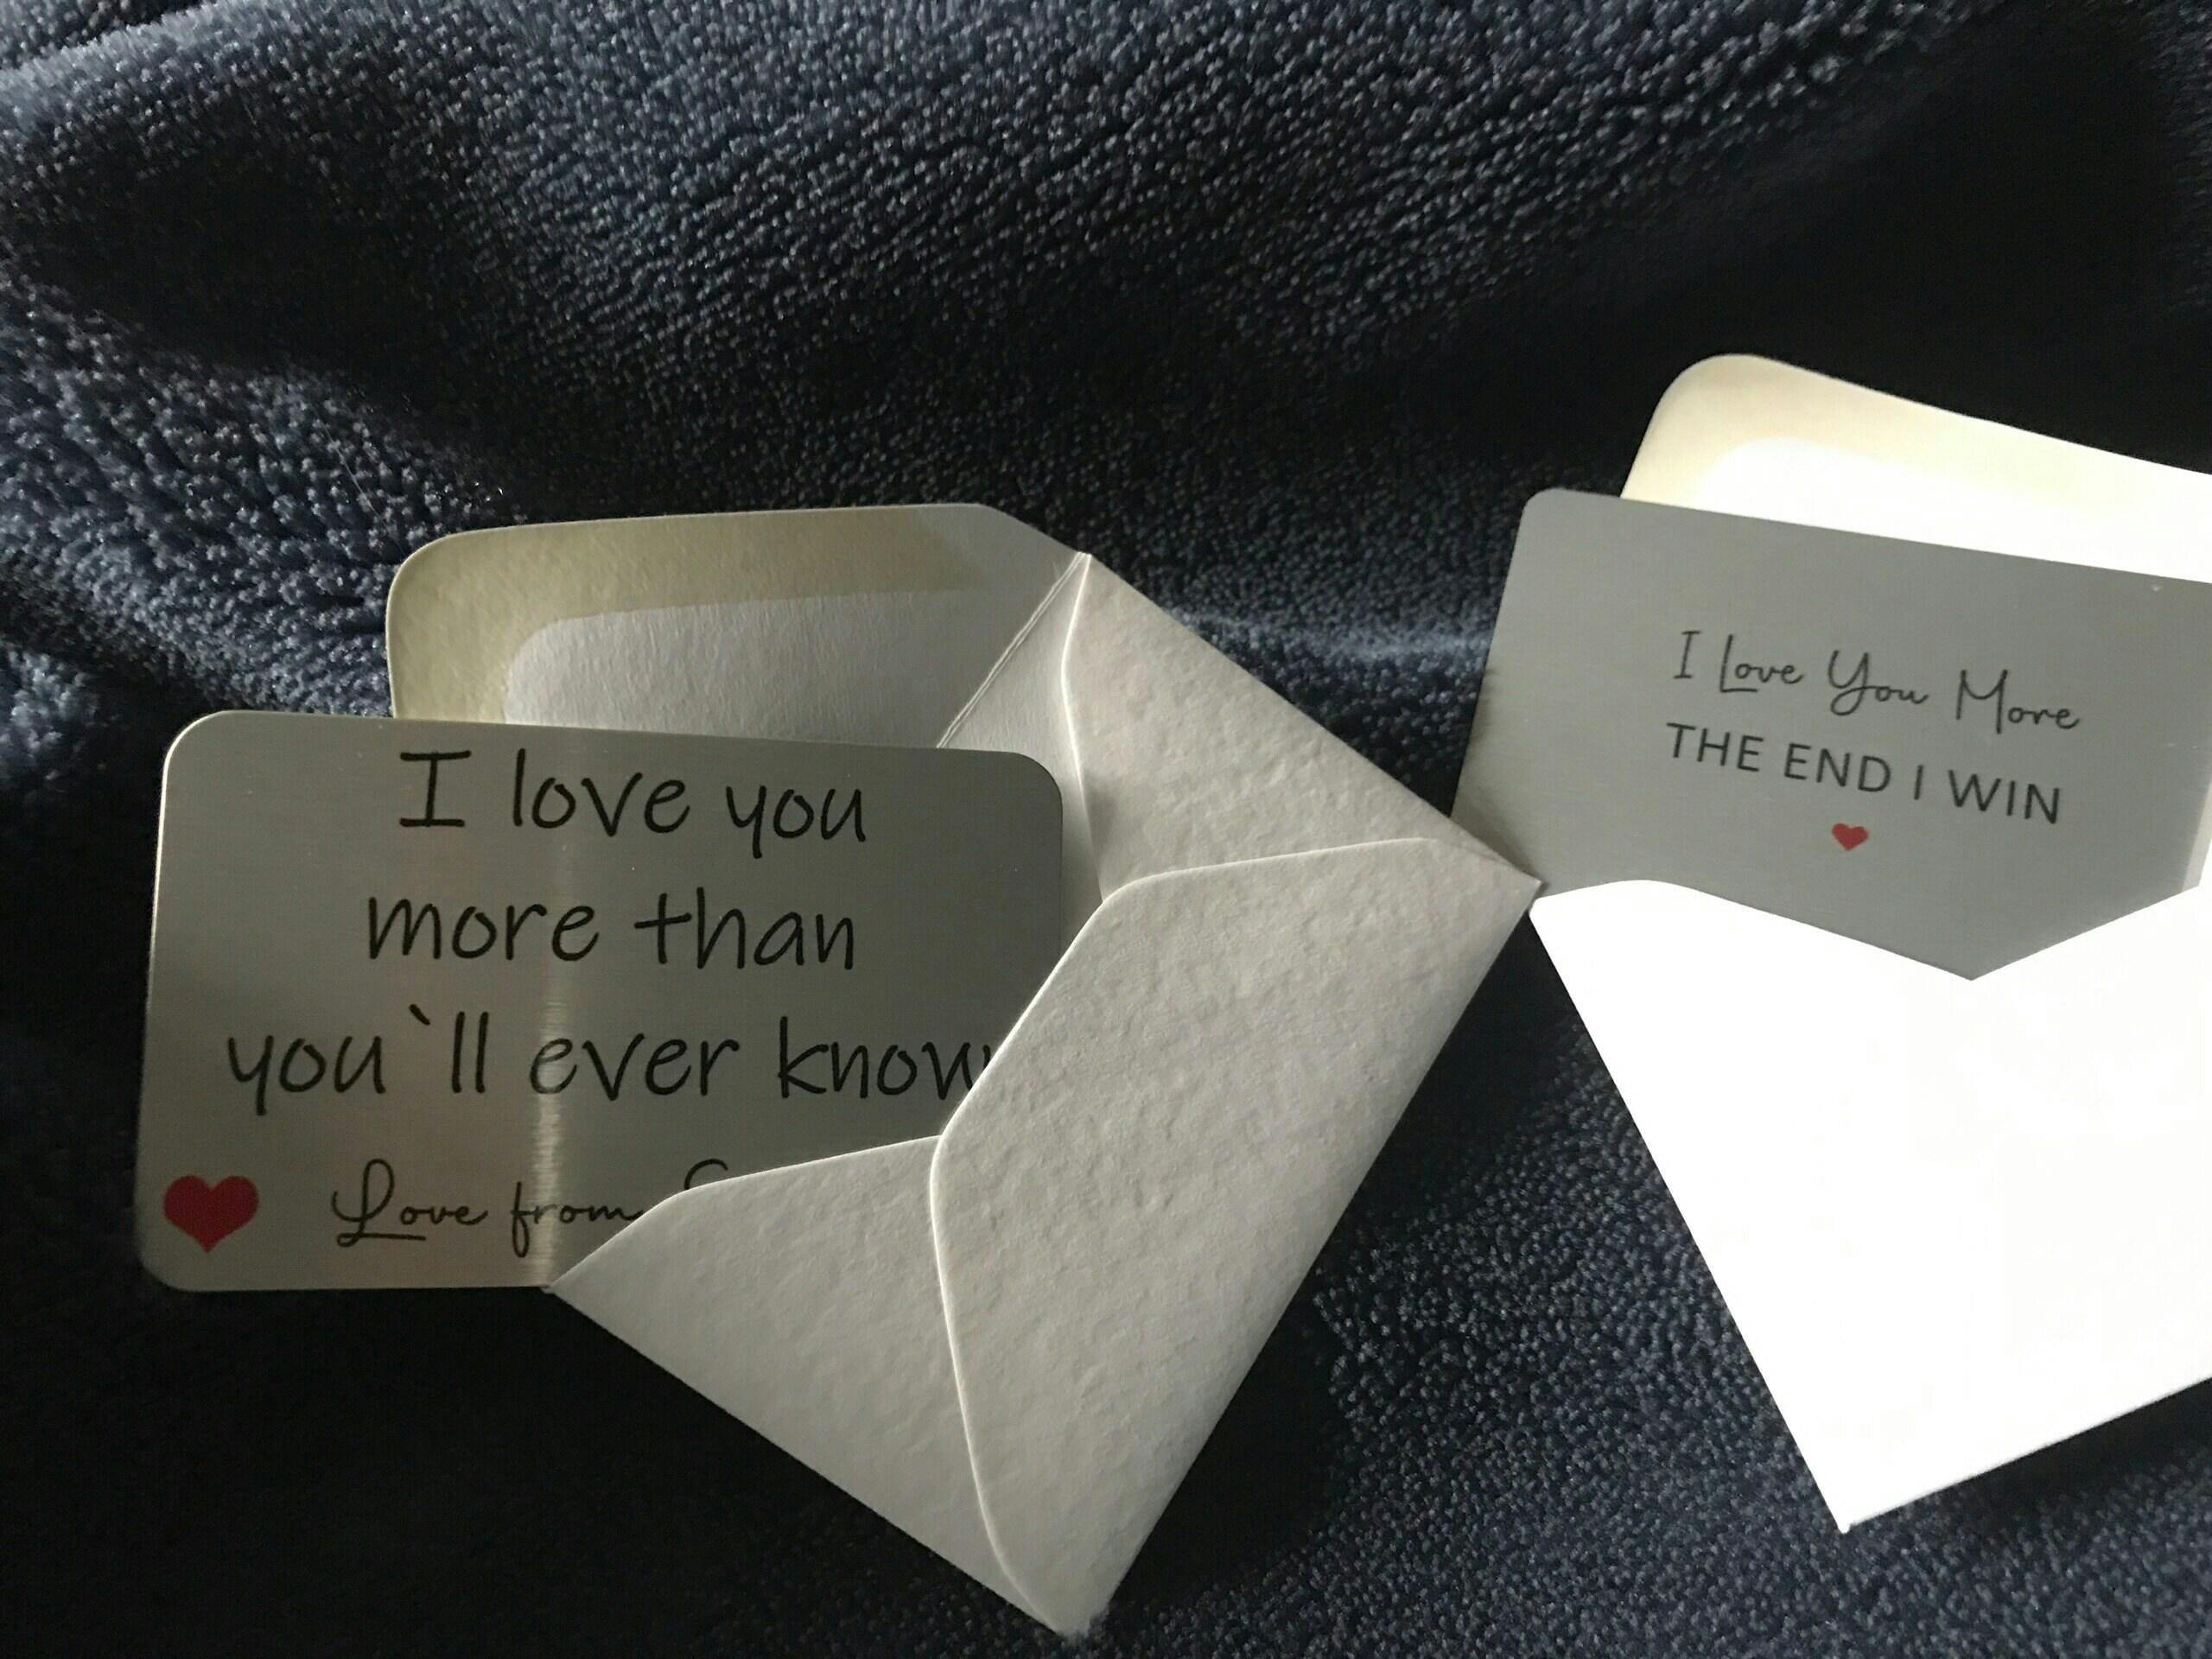 I love you
more than
you`ll ever know
Love from
I Love You More
THE END I WIN